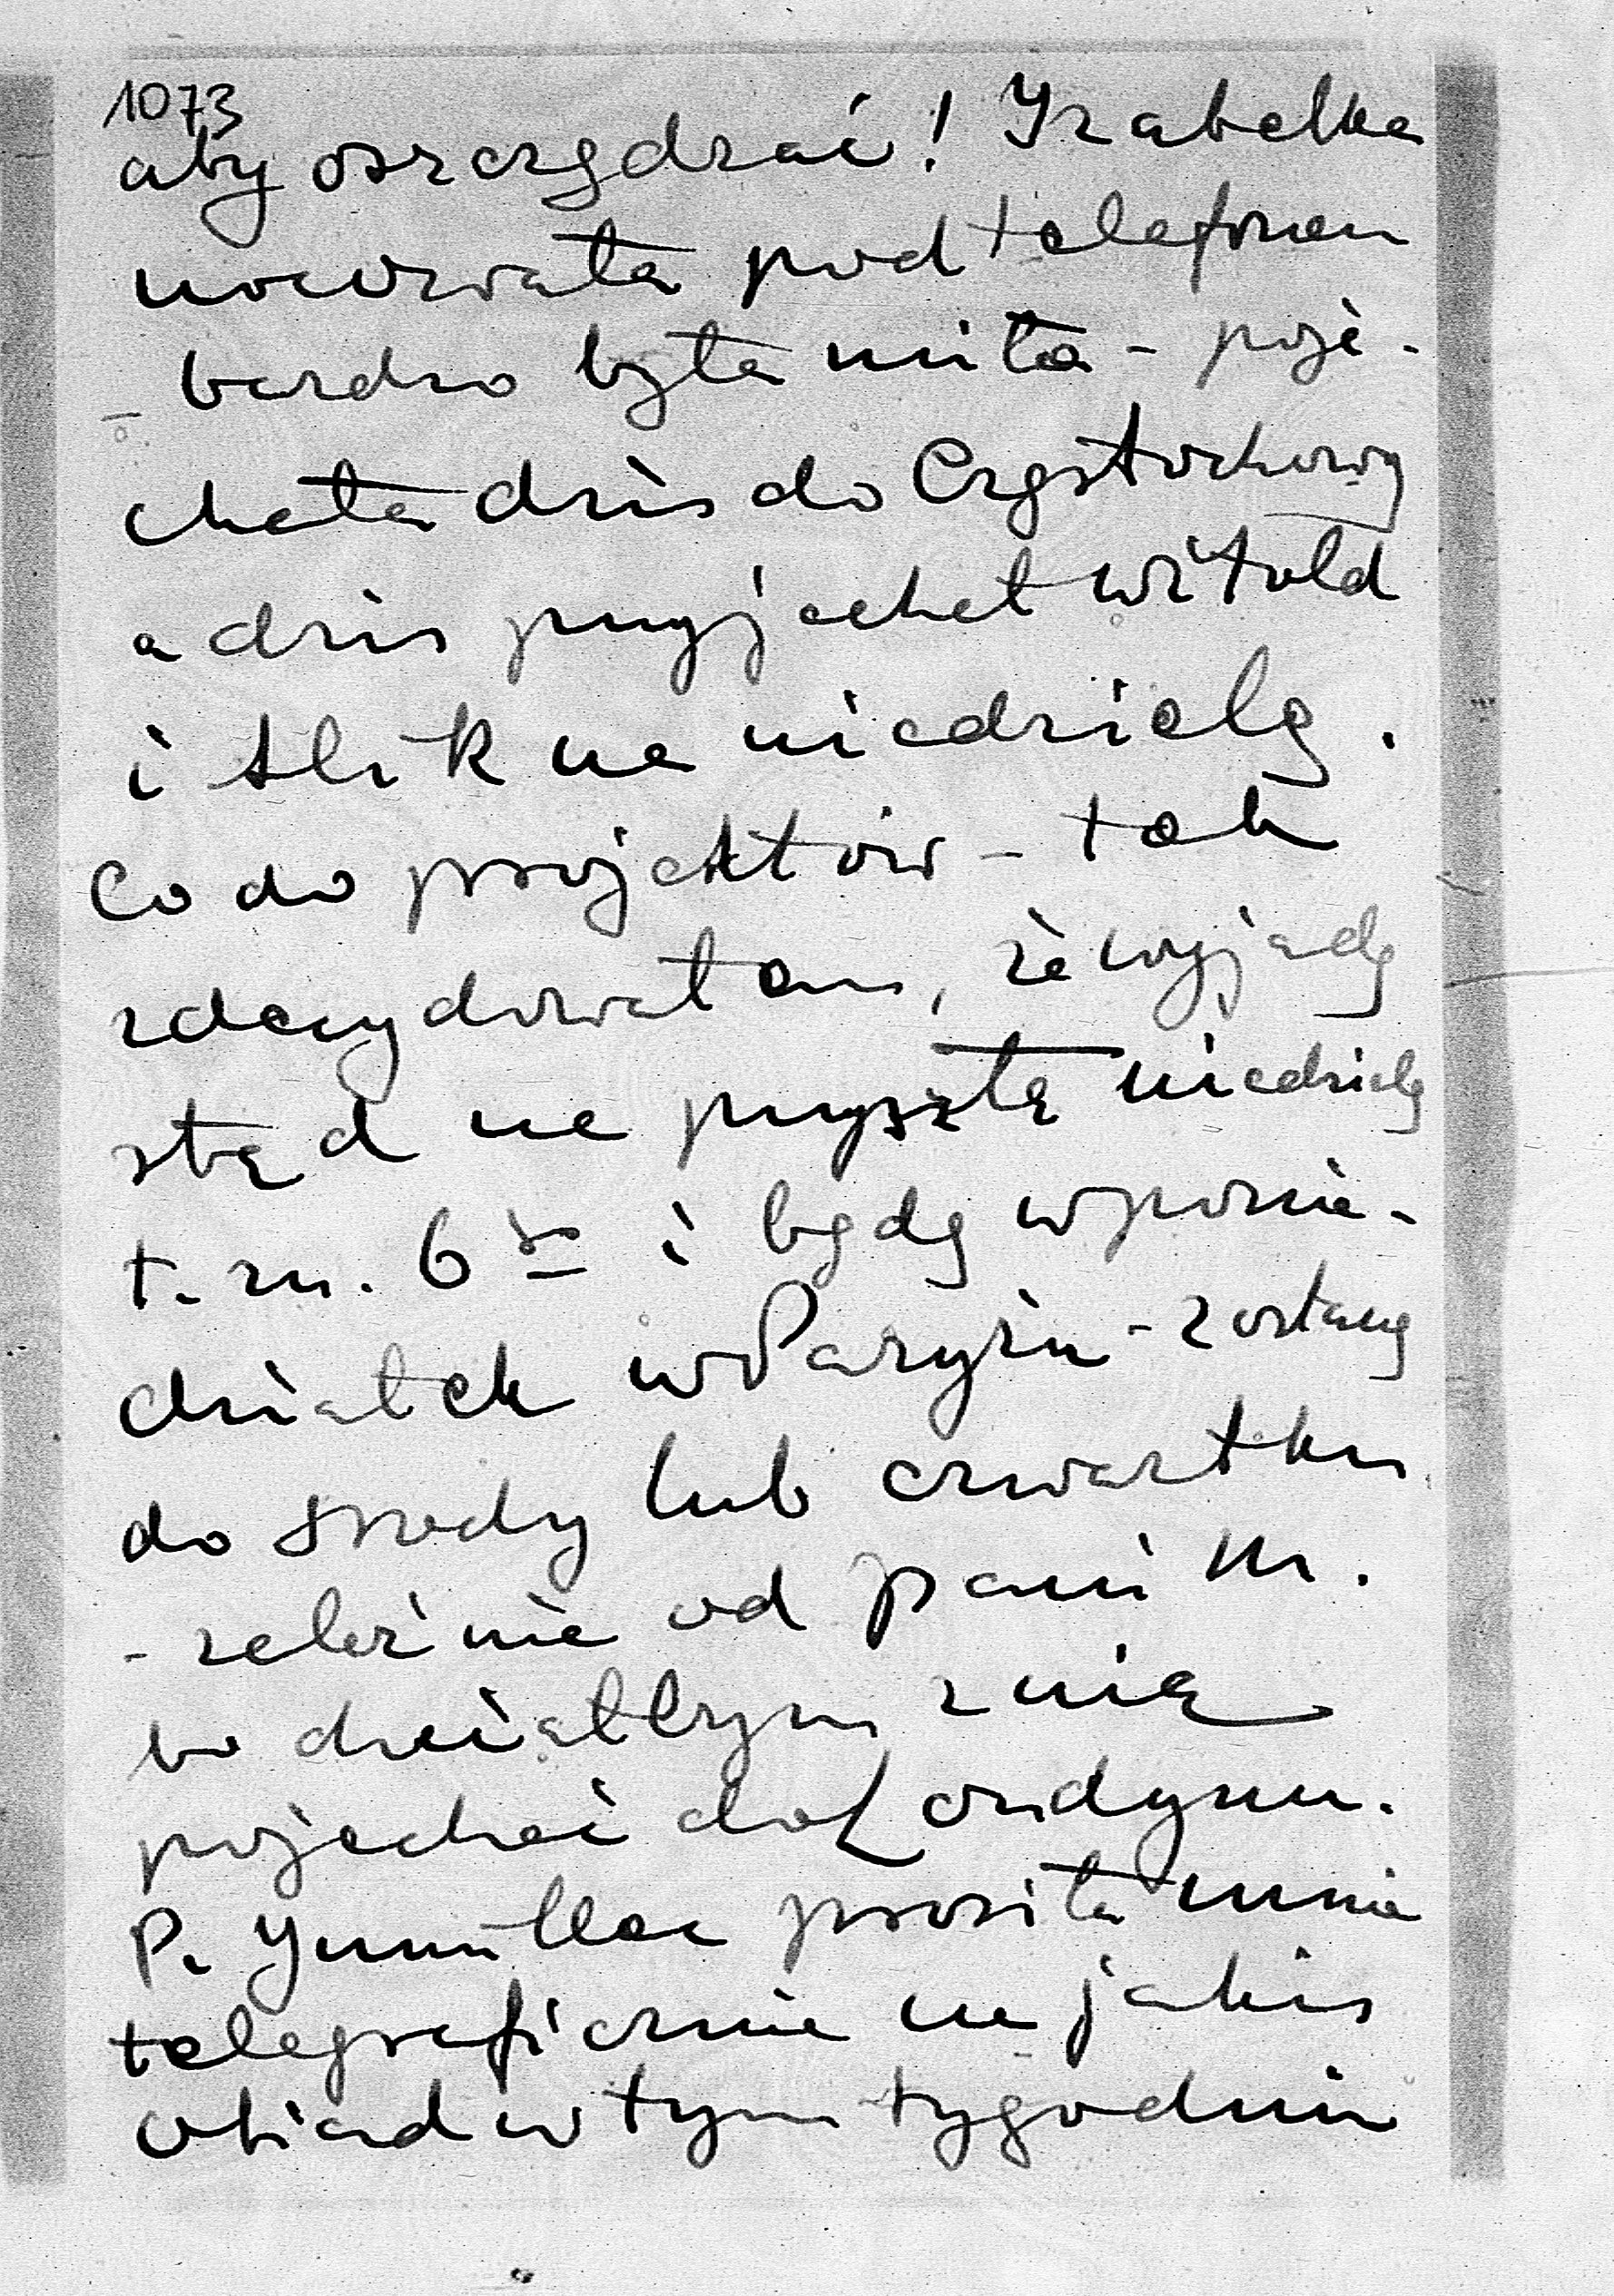 1073
aby oszczędzać! Izabelka
nocowała pod telefonem
- bardzo była miła - poje-
chała dziś do Częstochowy
a dziś przyjechał Witold
i Alik na niedzielę.
Co do projektów - tak
zdecydowałam, że wyjadę
stąd na przyszłą niedzielę
t. zn. 6go i będę w ponie-
działek w Paryżu - zostanę
do środy lub czwartku
- zależnie od pani M.
bo chciałbym z nią
pojechać do Londynu.
P. prosiła mnie
telegraficznie na jakiś
obiad w tym tygodniu